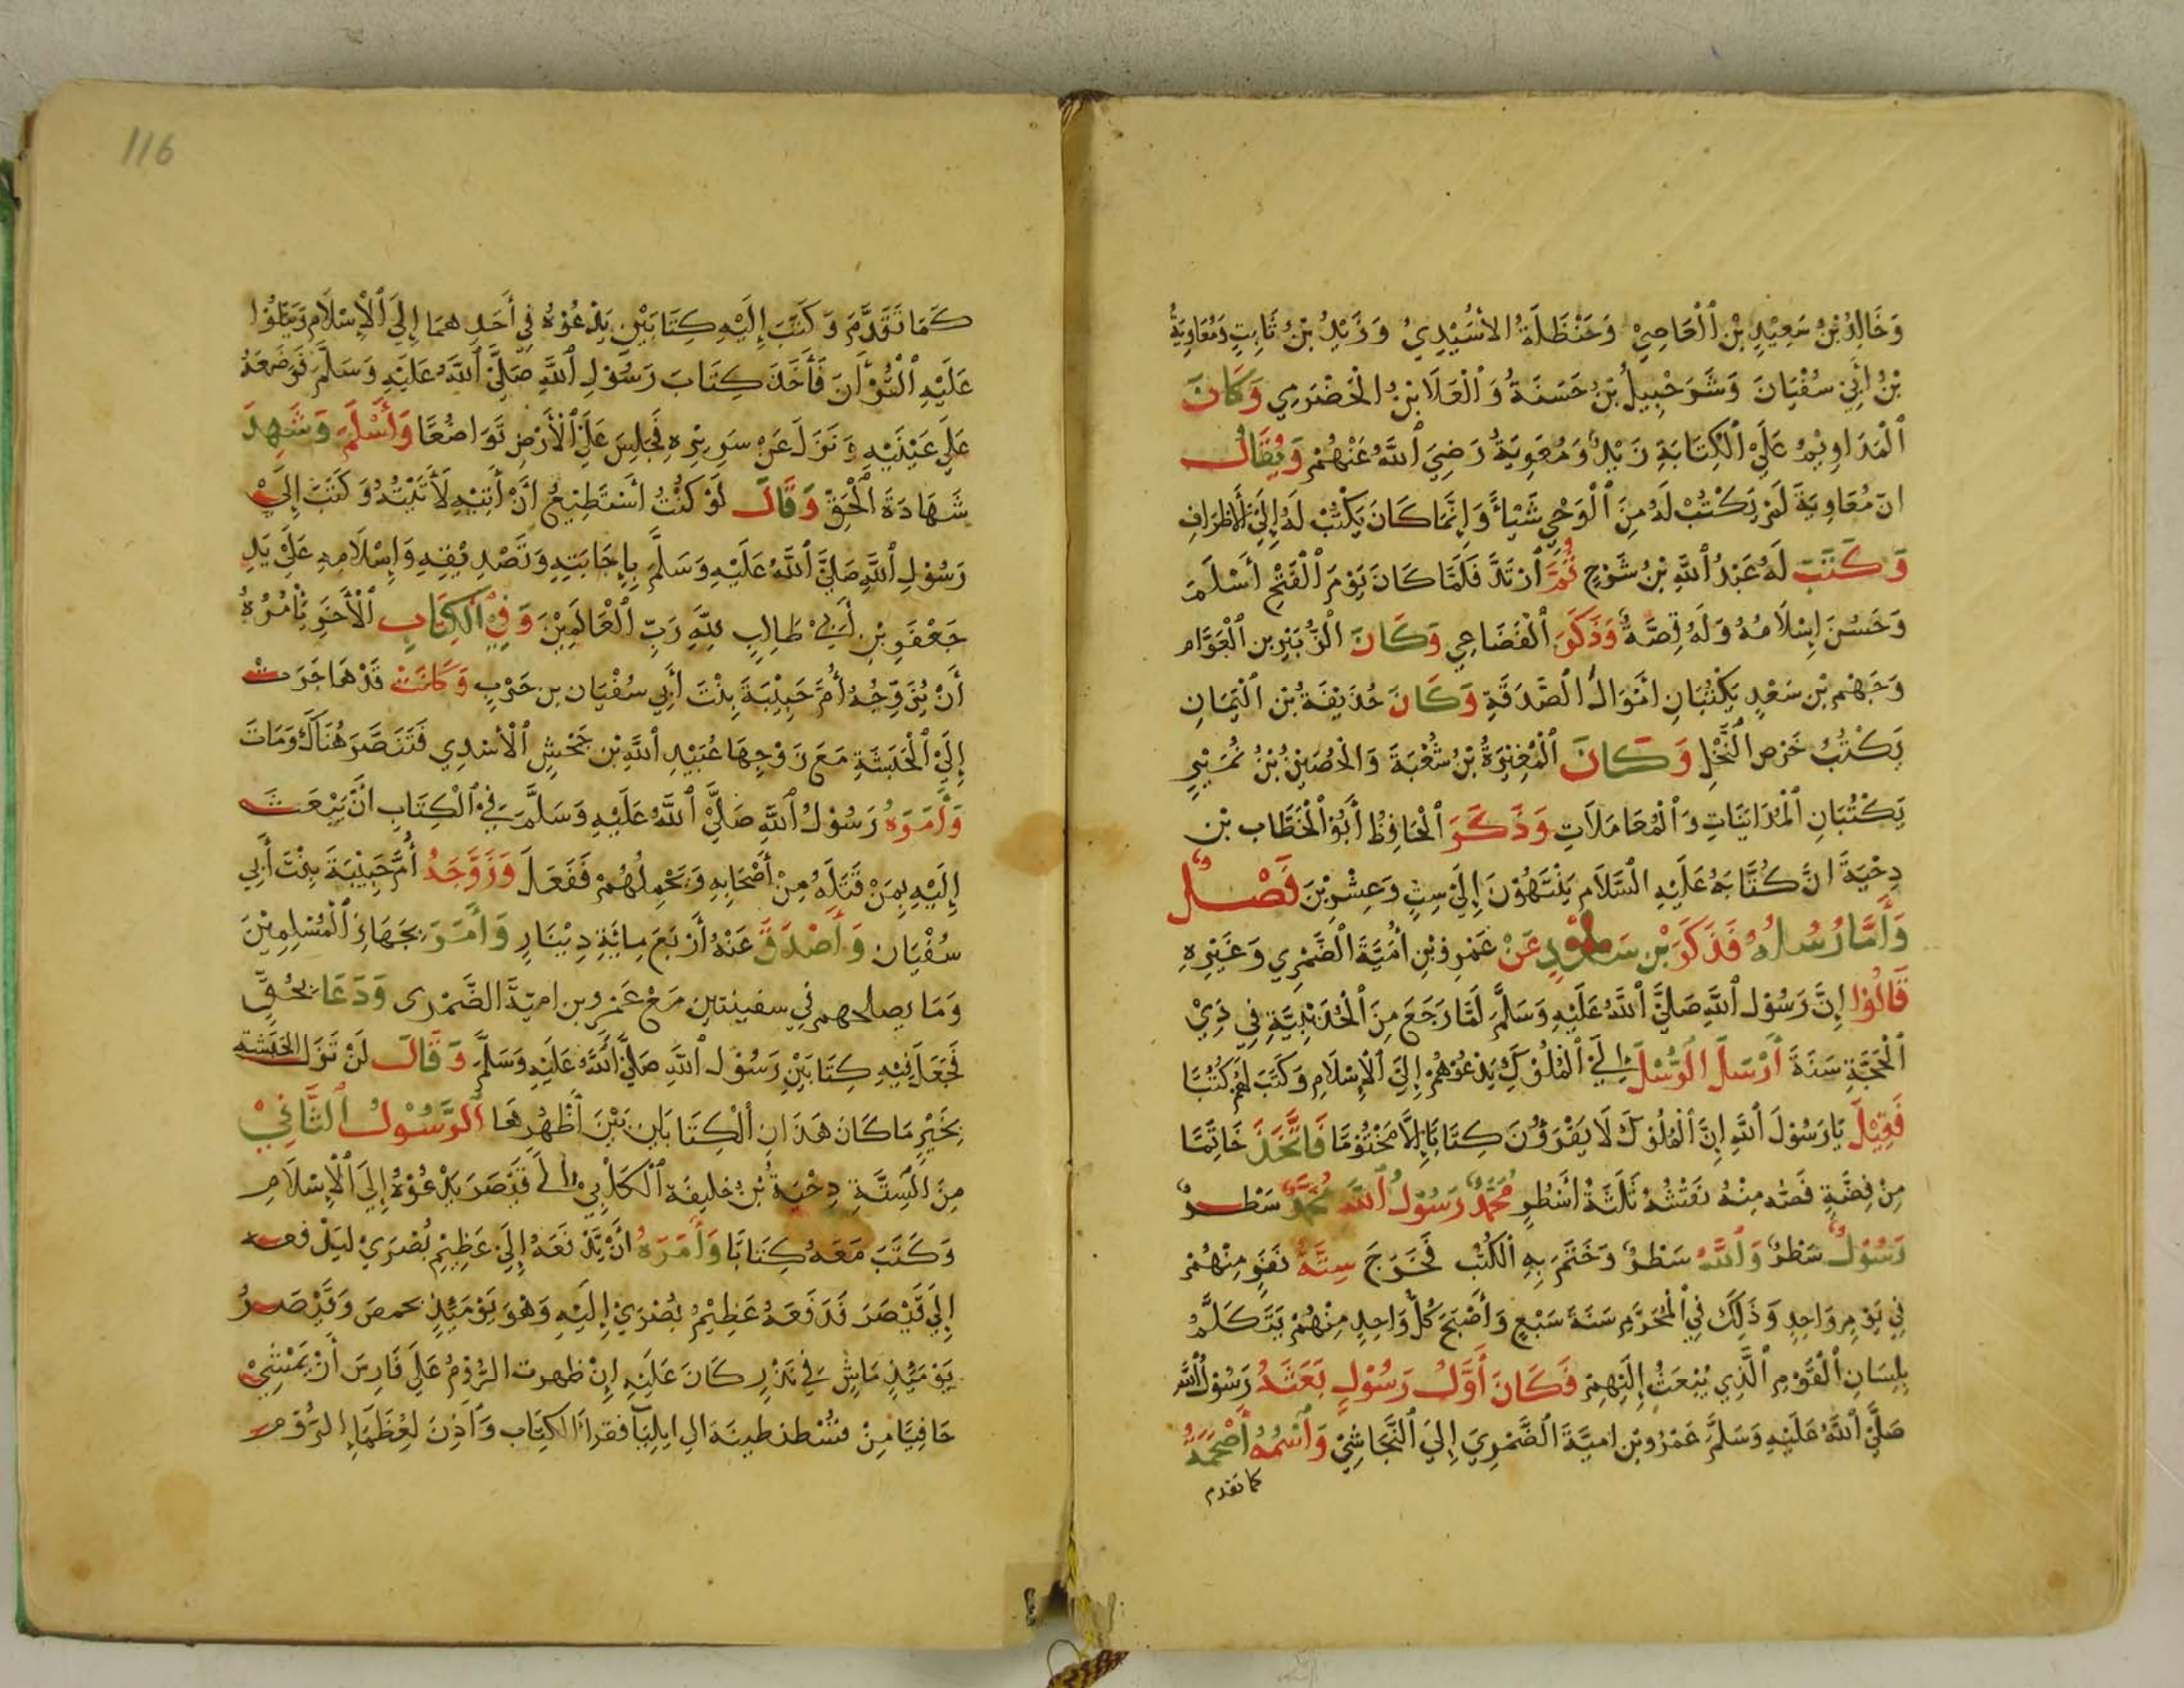 وَخَالِدُ بْنُ سَعِيْدِ بْنِ ٱلْعَاصِيْ وَحَنْظَلَةُ الأُسَيْدِيُ وَزَيْدُ بْنُ ثَابِتٍ وَمُعَاوِيَةُ
بْنُ أَبِيْ سُفْيَانَ وَشَرَحْبِيلُ بْنُ حَسَنَةُ وَٱلْعَلَا بْنُ الْحَضْرَمِي وَكَانَ
ٱلْمَدَاوِيْمُ عَلَيْ ٱلْكِتَابَةِ زَيْدٌ وَمُعَوِيَةُ رَضِيَ ٱللَّهُ عَنْهُمْ وَيُقَالُ
انَ مُعَاوِيَةَ لَمْ يَكْتُبْ لَهُ مِنَ ٱلْوَحْيِ شَيْاءً وَإِنَّمَا كَانَ يَكْتُبْ لَهُ إِلَيْ الأَطْرَافِ
وَكَتَبَ لَهُ عَبْدُ ٱللَّهِ بْنُ شَرْحٍ ثُمَّ ٱرْتَدَّ فَلَمَّا كَانَ يَوْمَ ٱلْفَتْحِ أَسْلَمَ
وَحَسُنَ إِسْلَامُهُ وَلَهُ قِصَّةٌ وَذَكَرَ ٱلْقَضَاعِي وَكَانَ الْزُّبَيْرِ بن ٱلْعَوَّام
وَجَهْم بْن سَعْدٍ يَكْتُبَانِ امْوَالُ ٱلْصَّدَقَةِ وَكَانَ حُذَيْفَةُ بْن ٱلْيَمَانِ
يَكْتُبُ خَرْص ٱلنَّخْلِ وَكَانَ ٱلْمُغِيْرَةُ بْنُ شُعْبَةَ وَالْحُصَيْنُ بْنُ نُمَيْرٍ
يَكْتُبَانِ ٱلْمُدَايَنَاتِ وَٱلْمُعَامَلَاتِ وَذَكَرَ ٱلْحَافِظُ أَبُوْ ٱلْخَطَّاب بْن
دِحْيَةَ انَّ كُتَّابَهُ عَلَيْهِ ٱلسَّلَام يَنْتَهُوْنَ إِلَيْ سِتٍ وَعِشْرِيْنَ فَصْلٌ
وَأَمَّا رُسُلُهُ فَذَكَرَ بْن سَعْدٍ عَنْ عَمْرِو بْنِ أُمَيَّةَ ٱلْضَّمْرِي وَغَيْرِهِ
قَالُوْا إِنَّ رَسُوْلَ ٱللَّهِ صَلَيَّ ٱللَّهُ عَلَيْهِ وَسَلَّمَ لَمَّا رَجَعَ مِنَ ٱلْحُدَيْبِيَّةِ فِي ذِيْ
ٱلْحَجَّةِ سَنَةَ أَرْسَلَ ٱلْرُّسْلَ إِلَيْ ٱلْمُلُوْكِ يَدْعُوْهُمْ إِلَيَ ٱلْإِسْلَامِ وَكَتَبَ لَهُمْ كُتُبًا
فَقِيْلَ يَا رَسُوْلَ ٱللَّهِ إِنَّ ٱلْمُلُوْكَ لَا يَقْرَؤُنَ كِتَابًا إِلَّا مَخْتُوْمًا فَاتَّخَذَ خَاتِمًا
مِنْ فِضَّةٍ فَصّه مِنْهُ نَقْشُهُ ثَلَثَةُ أَسْطُرٍ مُحَمَّدٌ رَسُوْلُ ٱللَّهِ مُحَمَّدٌ سَطْرٌ
رَسُوْلُ سَطْرٌ وَٱللَّهُ سَطْرٌ وَخَتَمَ بِهِ ٱلْكُتُبُ فَخَرَجَ سِتَّةُ نَفَرٍ مِنْهُمْ
فِيْ يَوْمٍ وَاحِدٍ وَذَلِكَ فِيْ ٱلْمُحَرَّمِ سَنَةَ سَبْعٍ وَأَصْبَحَ كُلُّ وَاحِدٍ مِنْهُمْ يَتَكَلَّمُ
بِلِسَانِ ٱلْقَوْمِ ٱلَّذِي يُبْعَثُ إِلَيْهِمْ فَكَانَ أَوَّلُ رَسُوْلٍ بَعَثَهُ رَسُوْلُ ٱللَّهِ
صَلَّيَ ٱللَّهُ عَلَيْهِ وَسَلَّمَ عَمْرُو بْن امَيَّةَ ٱلْضَّمْرِيَ إِلَيَ ٱلنَّجَاشِيْ وَٱسْمُهُ أَصْحَمَةُ
كما تقدم
116
كَمَا تَقَدَّمَ وَكَتَبَ إِلَيْهِ كِتَابَيْنِ يَدْعُوْهُ فِي أَحَدِهِمَا إِلَيَ ٱلْإِسْلَامِ وَيَتْلُوْا
عَلَيْهِ ٱلْقُرْأَنَ فَأَخَذَ كِتَابَ رَسُوْلِ ٱللَّهِ صَلَّيَ ٱللَّهُ عَلَيْهِ وَسَلَّمَ فَوَضَعَهُ
عَلَي عَيْنَيْهِ وَنَزَلَ عَنْ سَرِيْرِهِ فَجَلِسَ عَلَيَ ٱلْأَرْضِ تَوَاضُعًا وَأَسْلَمَ وَشَهِدَ
شَهَادَةَ ٱلْحَقِّ وَقَالَ لَوْ كُنْتُ أَسْتَطِيْعُ انْ أَتِيْهِ لأَتَيْتُهُ وَكَتَبَ إِلَيْ
رَسُوْلِ ٱللَّهِ صَلَيَّ ٱللَّهُ عَلَيْهِ وَسَلَّمَ بِإِجَابَتِهِ وَتَصْدِيْقِهِ وَإِسْلَامِهِ عَلَيْ يَدِ
جَعْفَرِ بْنِ أَبِيْ طَالِبٍ لِلَّهِ رَبِّ ٱلْعَالَمِيْنَ وَفِيْ ٱلْكِتَابِ ٱلْأَخَرِ يَأْمُرُهُ
أَنْ يُزَوِّجُهُ أُمَّ حَبِيْبَةَ بِنْتَ أَبِي سُفْيَان بن حَرْبٍ وَكَانَتْ قَدْ هَاجَرَتْ
إِلَيْ ٱلْحَبَشَةِ مَعَ زَوْجِهَا عُبَيْدِ ٱللَّهِ بْن جَحْشٍ ٱلْأَسْدِي فَتَنَصَّرَ هُنَاكَ وَمَاتَ
وَأَمَرَهُ رَسُوْلُ ٱللَّهِ صَلَيَّ ٱللَّهُ عَلَيْهِ وَسَلَّمَ فِيْ ٱلْكِتَابِ انْ يَبْعَثَ
إِلَيْهِ بِمَنْ قَبَلَهُ مِنْ أَصْحَابِهِ وَيَحْمِلُهُمْ فَفَعَلَ وَزَوَّجَهُ أُمَّ حَبِيْبَةَ بِنْتَ أَبِي
سُفْيَانَ وَأَصْدَقَ عَنْهُ أَرْبَعَ مِائَةِ دِيْنَارٍ وَأَمَرَ بِجَهَازِ ٱلْمُسْلِمِيْنَ
وَمَا يصلحهم فِي سفينتين مَعْ عَمْرو بن اميّةَ الضَّمْرِى وَدَعَا بِحُقٍّ
فَجَعَلَ فِيْهِ كِتَابَيْنِ رَسُوْل ٱللَّهِ صَلَيَّ ٱللَّهُ عَلَيْهِ وَسَلَّمَ وَقَالَ لَنْ تَزَلِ الْحَبَشَة
بِخَيْرٍ مَا كَانَ هَذَانِ ٱلْكِتَابَانِ بَيْنَ أَظْهُرِهَا ٱلْرَّسُوْلُ ٱلثَّانِيْ
مِنَ ٱلسِتَّةِ دِحْيَةُ بْنُ خليفَة ٱلْكَلْبِيْ إِلَيْ قَيْصَرَ يَدْعُوْهُ إِلَيَ ٱلْإِسْلَامِ
وَكَتَبَ مَعَهُ كِتَابًا وَأَمَرَهُ انْ يَدْفَعَهُ إِلَيْ عَظِيْمِ بُصْرَيْ لِيَدْفعه
إِلَيْ قَيْصَرَ فَدَفَعَهُ عَظِيْمُ بُصْرَيْ إِلَيْهِ وَهُوَ يَوْمَئِذٍ بحمصَ وَقَيْصَرُ
يَوْمَئِذٍ مَاشٍ فِيْ نَذْرٍ كَانَ عَلَيْهِ إِنْ ظهرت الْرُّوْمُ عَلَيَ فَارِسَ أَنْ يَمْشِيْ
حَافِيًا مِنْ قسْطنطينة الي ايليا فقرأ الكِتَاب وَأَذِنَ لِعُظَمَاءِ الرُّوْم